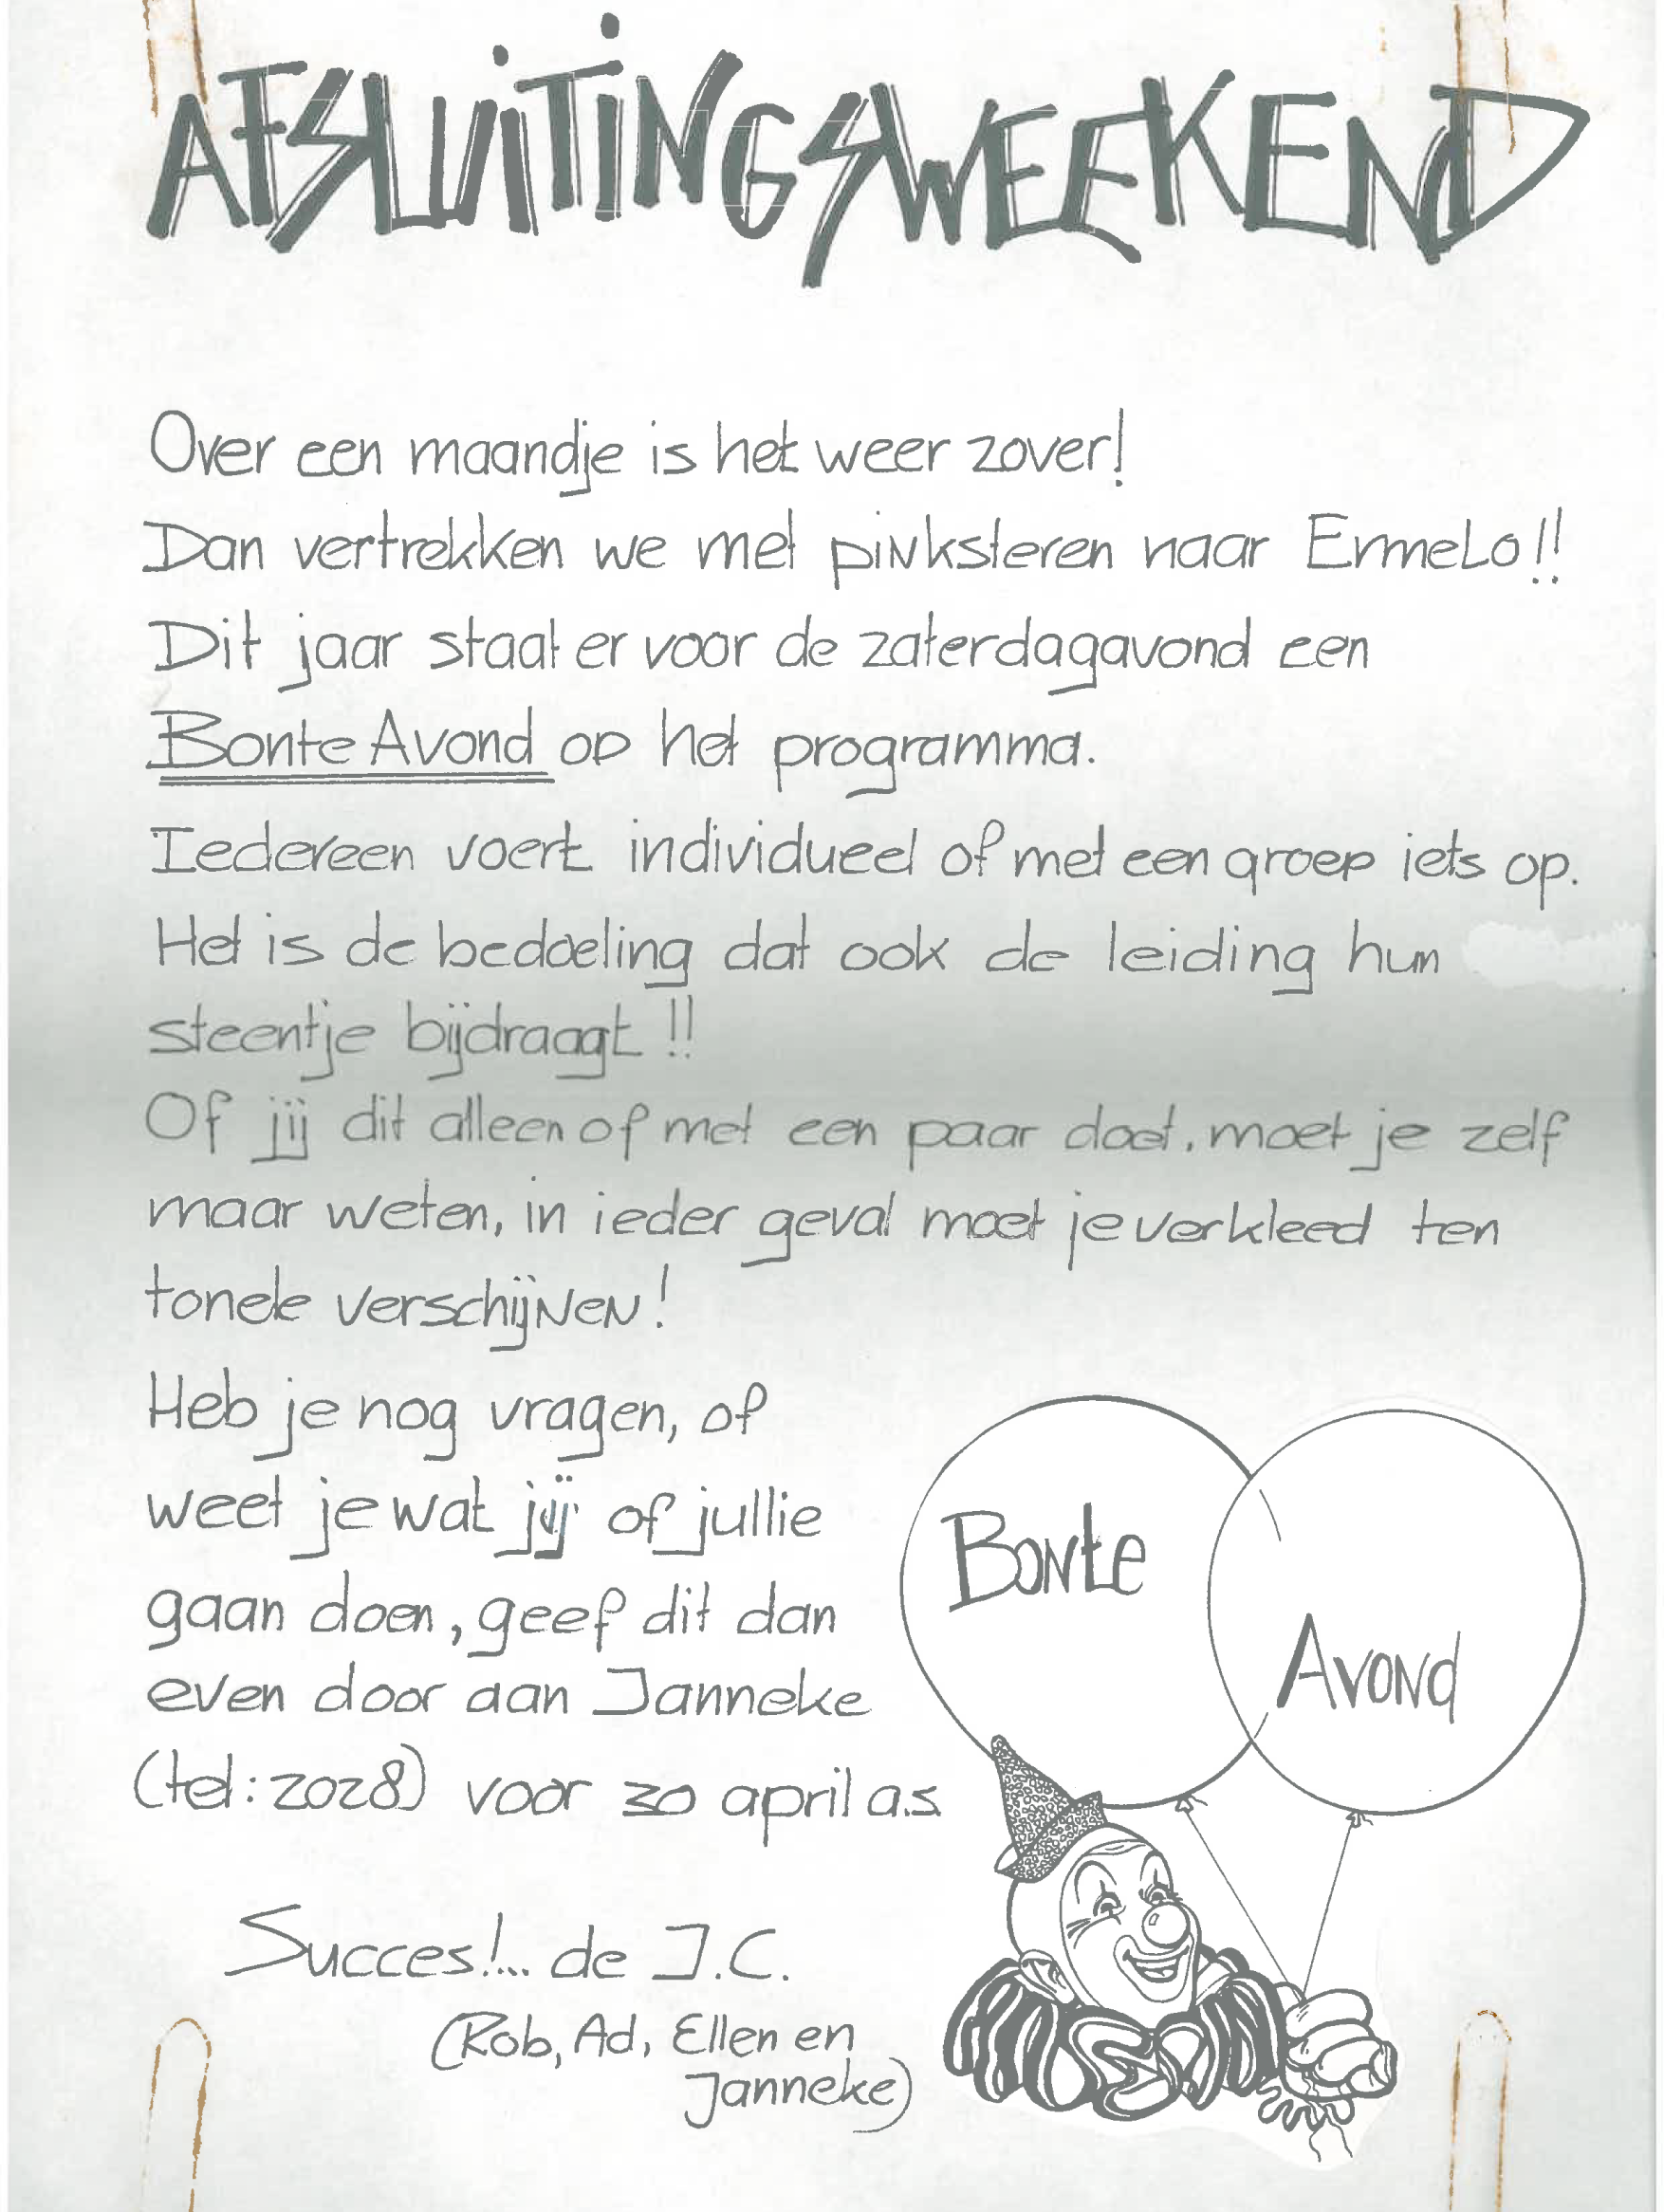 AFSLUITINGSWEEKEND
Over een maandje is het weer zover!
Dan vertrekken we met pinksteren naar Ermelo!!
Dit jaar staat er voor de zaterdagavond een
Bonte Avond op het programma.
Iedereen voert individueel of met een groep iets op.
Het is de bedoeling dat ook de leiding hun
steentje bijdraagt!!
Of jij dit alleen of met een paar doet, moet je zelf
maar weten, in ieder geval moet je verkleed ten
tonele verschijnen!
Heb je nog vragen, of
weet je wat jij of jullie
gaan doen, geef dit dan
even door aan Janneke
(tel: 2028) voor 30 april a.s
Succes!... de J.C.
(Rob, Ad, Ellen en
Janneke)
Bonte
Avond